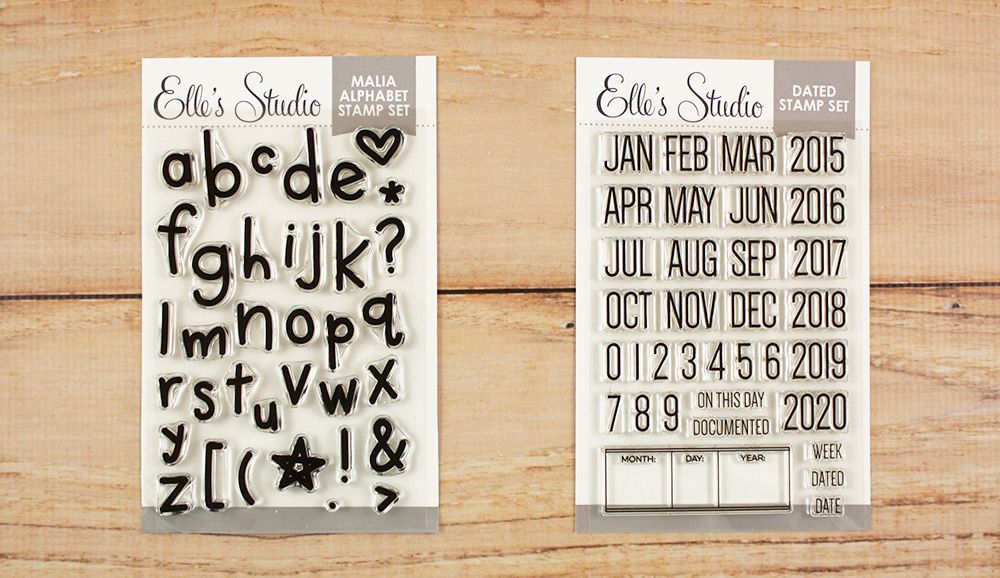 Elle's Studio
MALIA
ALPHABET
STAMP SET
a b c d e
f g h i j k ?
l m n o p q
r s t u v w x
y [ ( ! &
z . >
Elle's Studio
DATED
STAMP SET
JAN FEB MAR 2015
APR MAY JUN 2016
JUL AUG SEP 2017
OCT NOV DEC 2018
0 1 2 3 4 5 6 2019
7 8 9 ON THIS DAY 2020
DOCUMENTED
MONTH: DAY: YEAR: WEEK
DATED
DATE